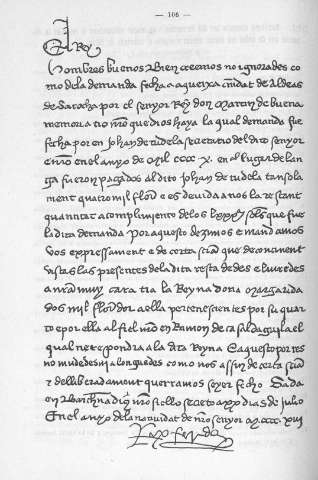 — 106 —
El Rey
Hombres buenos Bien creemos no ignorades co
mo dela demanda fecha a aqueixa comunidat de Aldeas
de Daroqua por el senyor Rey don Martin de buena
memoria tio nro que dios haya la qual demanda fue
fecha por en Johan de tudela secretario del dito senyor
e nro en el anyo de Mil CCCC X. en el lugar de lan
ga fueron pagados al dito Johan de tudela tansola
ment quatro mil flor e es devida a nos la restant
quantitat a compliment de los sols que fue
la dita demanda Por aquesto dezimos e mandamos
vos expressament e de certa sciā que de continent
vistas las presentes de la dita resta dedes e livredes
a nra muy cara tia la Reyna dona Margarida
dos mil flor dor a ella pertenescientes por su quar
to e por ella al fiel nro en Ramon de casaldaguila el
qual nende respondra a la dita Reyna E aquesto por res
no mudedes ni alonguedes como nos assin de certa sciā
e delliberadament queramos seyer fecho Dada
en Barchna dius nro siello secreto a XX dias de julio
En el anyo de la natividat de nro senyor M.CCCC. XVI
Rex Ferdus